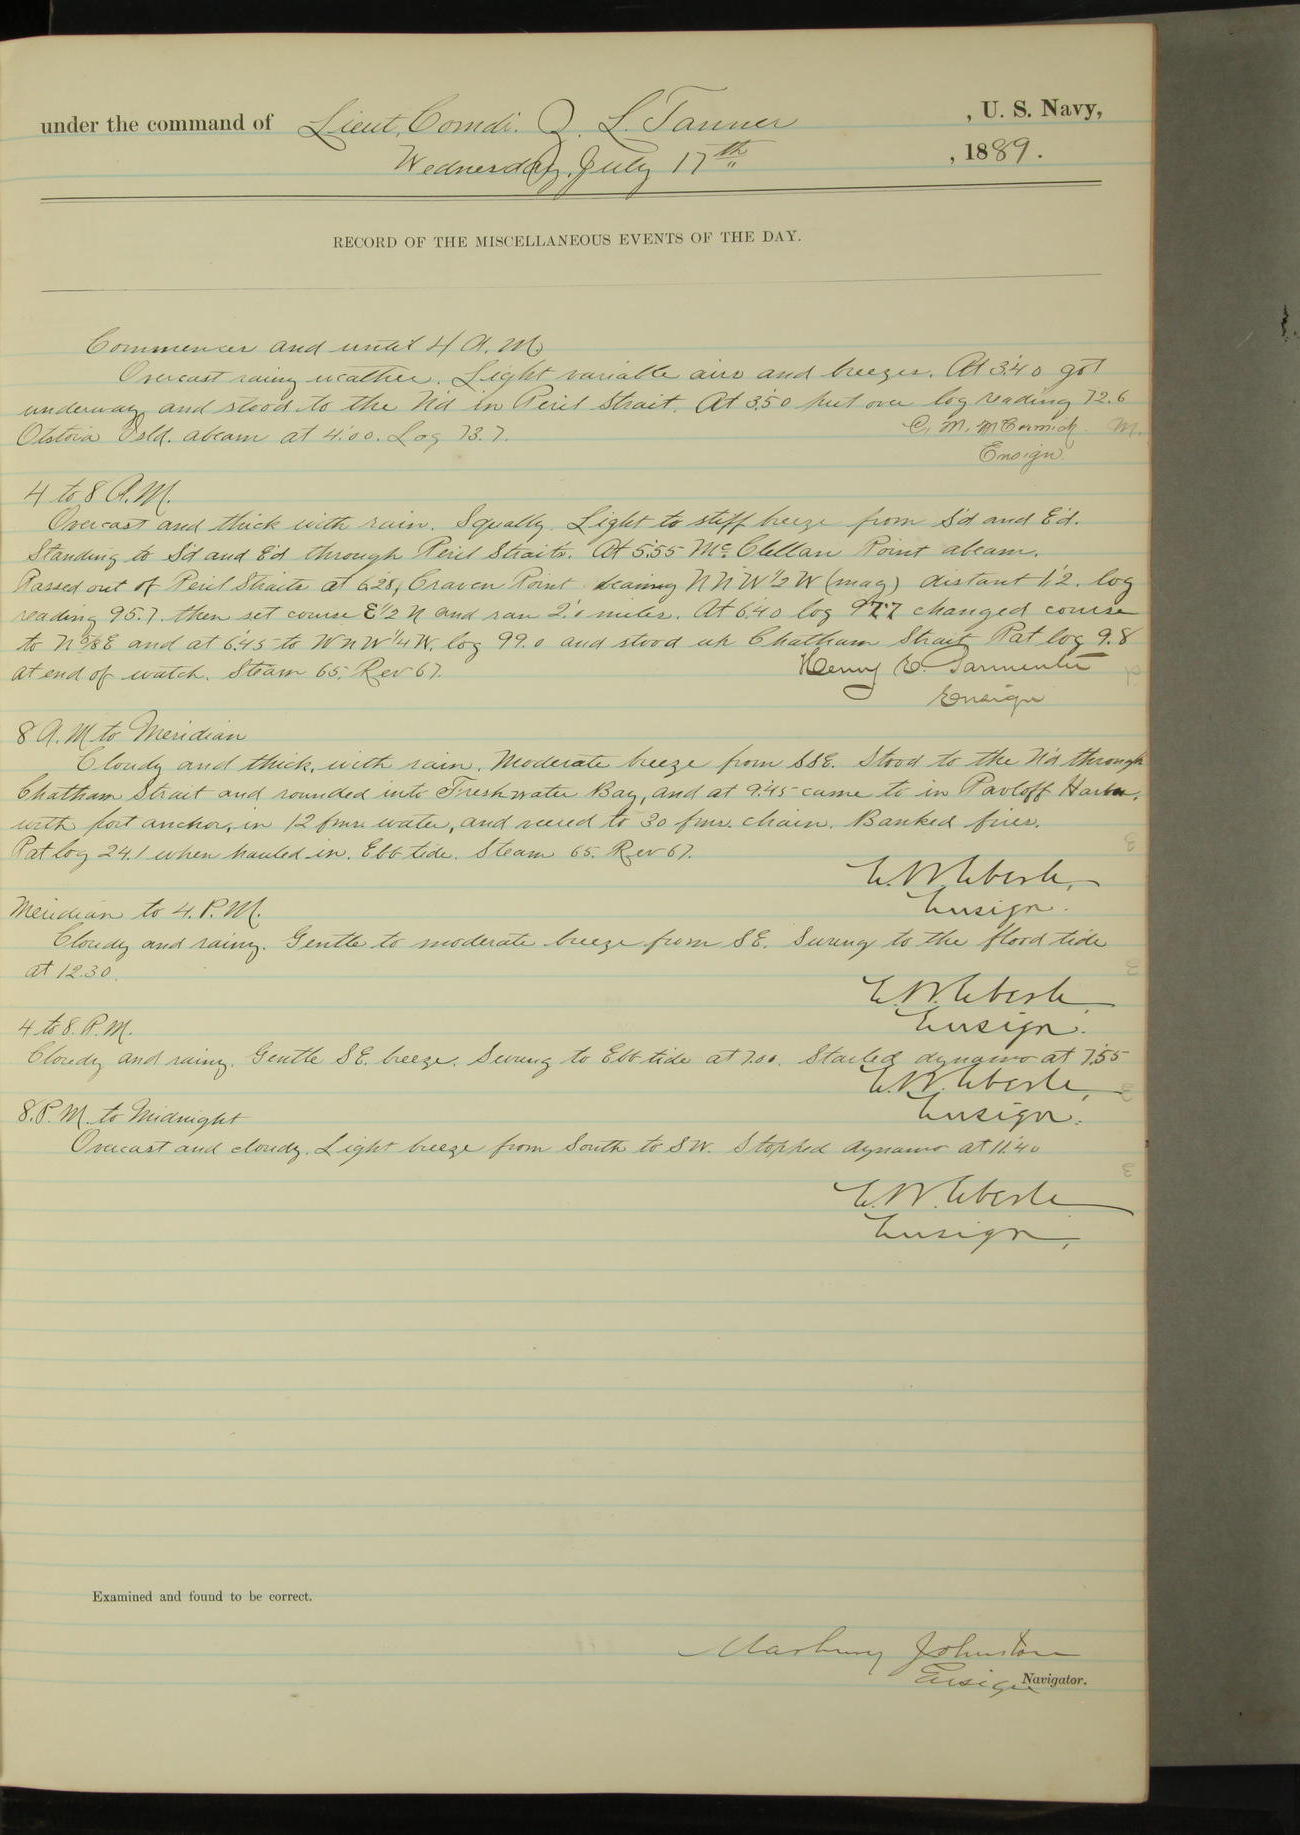 under the command of Lieut. Comdr. Z. L. Tanner , U. S. Navy,
Wednesday, July 17th , 1889.
RECORD OF THE MISCELLANEOUS EVENTS OF THE DAY.
Commences and until 4 A. M.
Overcast rainy weather. Light variable airs and breezes. At 3:40 got
underway and stood to the N'd in Peril Strait. At 3:50 put over log reading 72.6
Olstoia Isld. abeam at 4:00. Log 73.7. C. M. McCormick
Ensign
4 to 8 A.M.
Overcast and thick with rain. Squally. Light to stiff breeze from S'd and E'd.
Standing to S'd and E'd through Peril Straits. At 5:55 McClellan Point abeam.
Passed out of Peril Straits at 6:28, Craven Point bearing NNW 1/2 W (mag) distant 1'.2. log
reading 95.7. then set course E 1/2 N and ran 2'.0 miles. At 6:40 log 97.7 changed course
to N 3/8 E and at 6:45 to WNW 1/4 W. log 99.0 and stood up Chatham Strait Pat log 9.8
at end of watch. Steam 65. Rev 67. Henry E. Parmenter
Ensign
8 A.M to Meridian
Cloudy and thick, with rain. Moderate breeze from SSE. Stood to the N'd through
Chatham Strait and rounded into Freshwater Bay, and at 9:45 came to in Pavloff Harbor,
with port anchor, in 12 fms. water, and veered to 30 fms. chain. Banked fires.
Pat log 24.1 when hauled in. Ebb tide. Steam 65. Rev 67.
E. W. Eberle,
Ensign.
Meridian to 4. P.M.
Cloudy and rainy. Gentle to moderate breeze from SE. Swung to the flood tide
at 12.30.
E. W. Eberle,
Ensign.
4 to 8. P.M.
Cloudy and rainy. Gentle SE. breeze. Swung to Ebb tide at 7.00. Started dynamo at 7:55
E. W. Eberle,
Ensign.
8. P.M. to Midnight
Overcast and cloudy. Light breeze from South to SW. Stopped dynamo at 11:40
E. W. Eberle
Ensign,
Examined and found to be correct.
Marbury Johnston
Ensign Navigator.